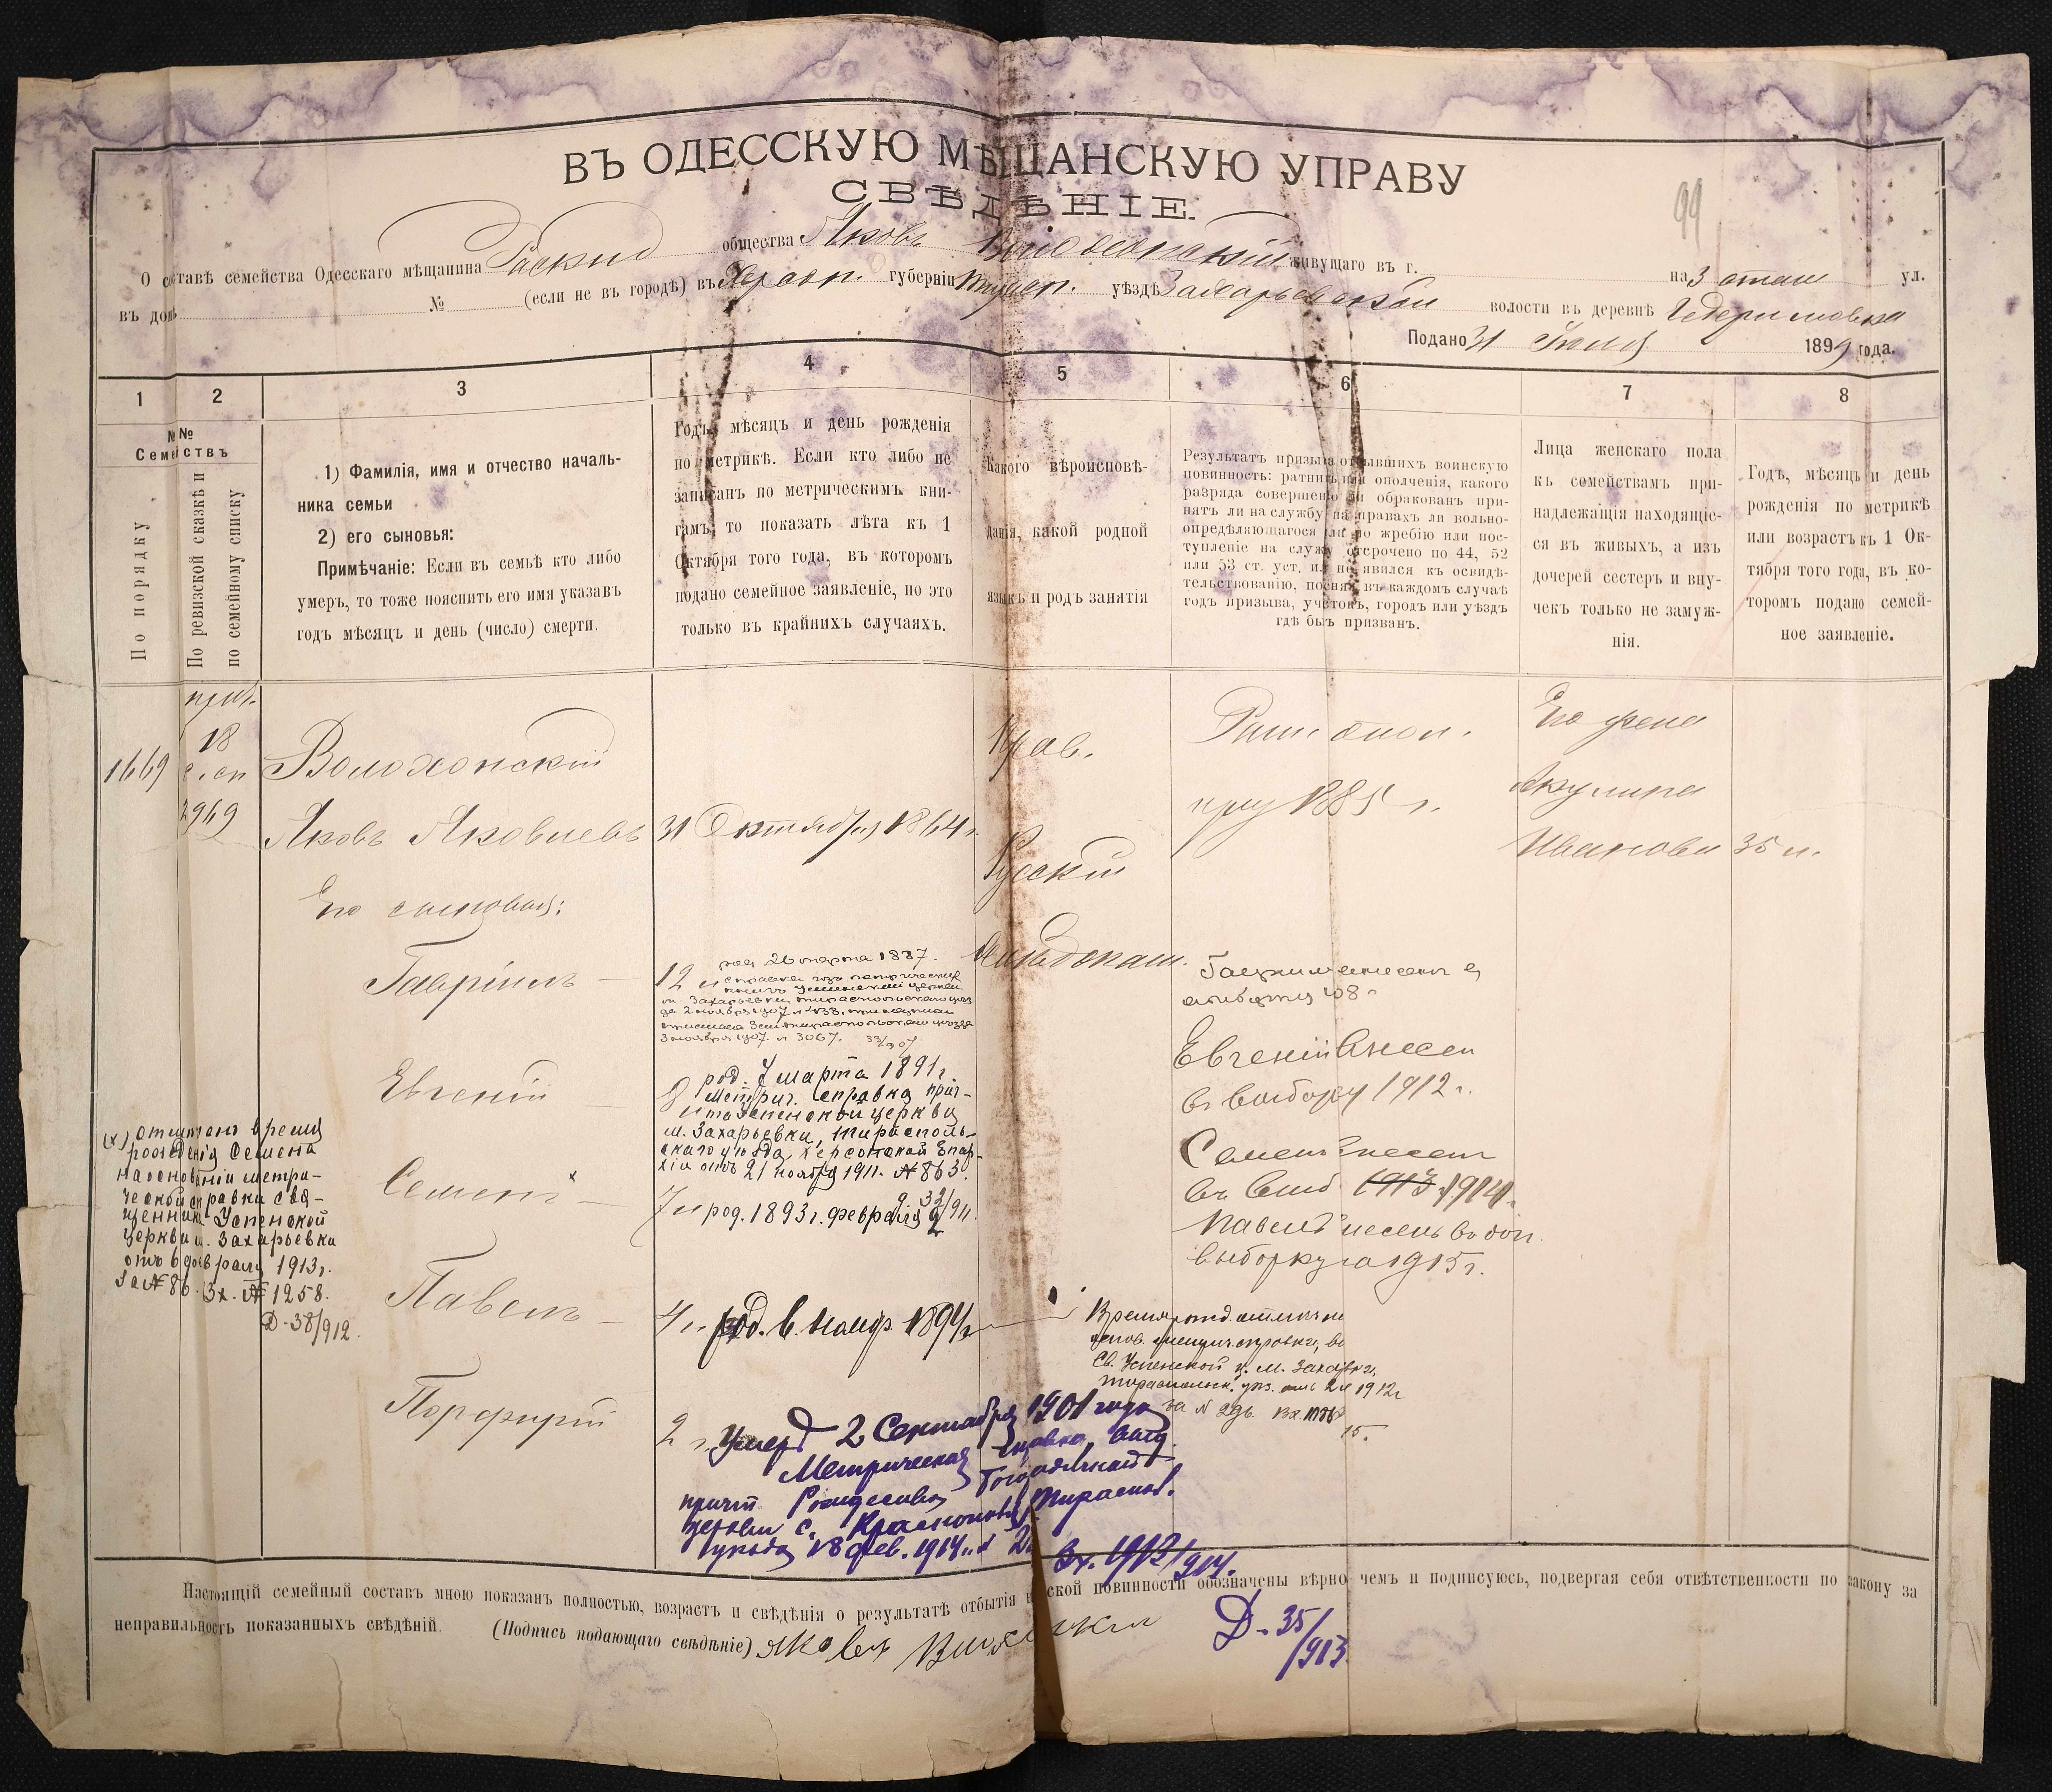 ВЪ ОДЕССКУЮ МѢЩАНСКУЮ УПРАВУ
СВѢДѢНІЕ.
99
О составѣ семейства Одесскаго мѣщанина общества Яковъ живущаго въ г. на 3 ул.
въ домѣ № (если не въ городѣ) въ Херсон. губерніи уѣздѣ Захарьевской волости въ деревнѣ
Подано 31 1899 года.
1 2 3 4 5 6 7 8
№№
Семействъ
По порядку
По ревизской сказкѣ и
по семейному списку
1) Фамилія, имя и отчество началь-
ника семьи
2) его сыновья:
Примѣчаніе: Если въ семьѣ кто либо
умеръ, то тоже пояснить его имя указавъ
годъ мѣсяцъ и день (число) смерти.
Годъ, мѣсяцъ и день рожденія
по метрикѣ. Если кто либо не
записанъ по метрическимъ кни-
гамъ, то показать лѣта къ 1
Октября того года, въ которомъ
подано семейное заявленіе, но это
только въ крайнихъ случаяхъ.
Какого вѣроисповѣ-
данія, какой родной
языкъ и родъ занятія
Результатъ призыва отбывшихъ воинскую
повинность: ратникъ ли ополченія, какого
разряда совершенно ли обракованъ при-
нятъ ли на службу на правахъ ли вольно-
опредѣляющагося ли по жребію или пос-
тупленіе на служу отсрочено по 44, 52
или 53 ст. уст. или не явился къ освидѣ-
тельствованію, поясня въ каждомъ случаѣ
годъ призыва, участокъ, городъ или уѣздъ
гдѣ былъ призванъ.
Лица женскаго пола
къ семействамъ при-
надлежащія находящіе-
ся въ живыхъ, а изъ
дочерей сестеръ и вну-
чекъ только не замуж-
нія.
Годъ, мѣсяцъ и день
рожденія по метрикѣ
или возрастъ къ 1 Ок-
тября того года, въ ко-
торомъ подано семей-
ное заявленіе.
18
1669
2969
Волохонскій
Яковъ Яковлевъ 31 Октября 1864 г.
Прав.
Русскій
1885 г.
Его жена
Акулина
Иванова 35 л.
Его сыновья:
Гавріилъ 12 л
род. 26 марта 1887.
справка изъ метрической
книги Успенской церкви
м. Захарьевки, Тирасполь­скаго уѣз
да 2 ноября 1907
3 ноября 1907. № 3067. 33/907
Евгеній 8 л
род. 7 марта 1891 г.
Метрич. справка прич-
та Успенской церкви
м. Захарьевки, Тирасполь-
скаго уѣзда, Херсонской Епар-
хіи отъ 21 ноября 1911. № 863.
Евгеній внесен
в выборку 1912 г.
Семенъ 7 л род. 1893 г. февраля 32/911.
Семенъ внесенъ
въ выб 1913 1914 г.
(х) отмѣчено время
рожденія Семена
на основаніи метри-
ческой справки свя-
щенника Успенской
церкви м. Захарьевки
отъ 6 февраля 1913 г.
за № 86. Вх. № 1258.
Д-38/912.
Павелъ 4 л род. 6. 1894 г.
Павелъ внесенъ въ доп.
выборку за 1915 г.
Св. Успенской ц. м. Захарьевки,
1912 г
15.
Порфирій 2 г.
Умеръ 2 Сентября 1901 года
Метрическая справка выд.
причт. Рождество Богородичной
церкви с. Тираспол.
уѣзда 18 фев. 1914
Вх. 1913/914.
Д-35/913
Настоящій семейный составъ мною показанъ полностью, возрастъ и свѣдѣнія о результатѣ отбытія воинской повинности обозначены вѣрно чемъ и подписуюсь, подвергая себя отвѣтственности по закону за
неправильность показанныхъ свѣдѣній. (Подпись подающаго свѣдѣніе) Яковъ